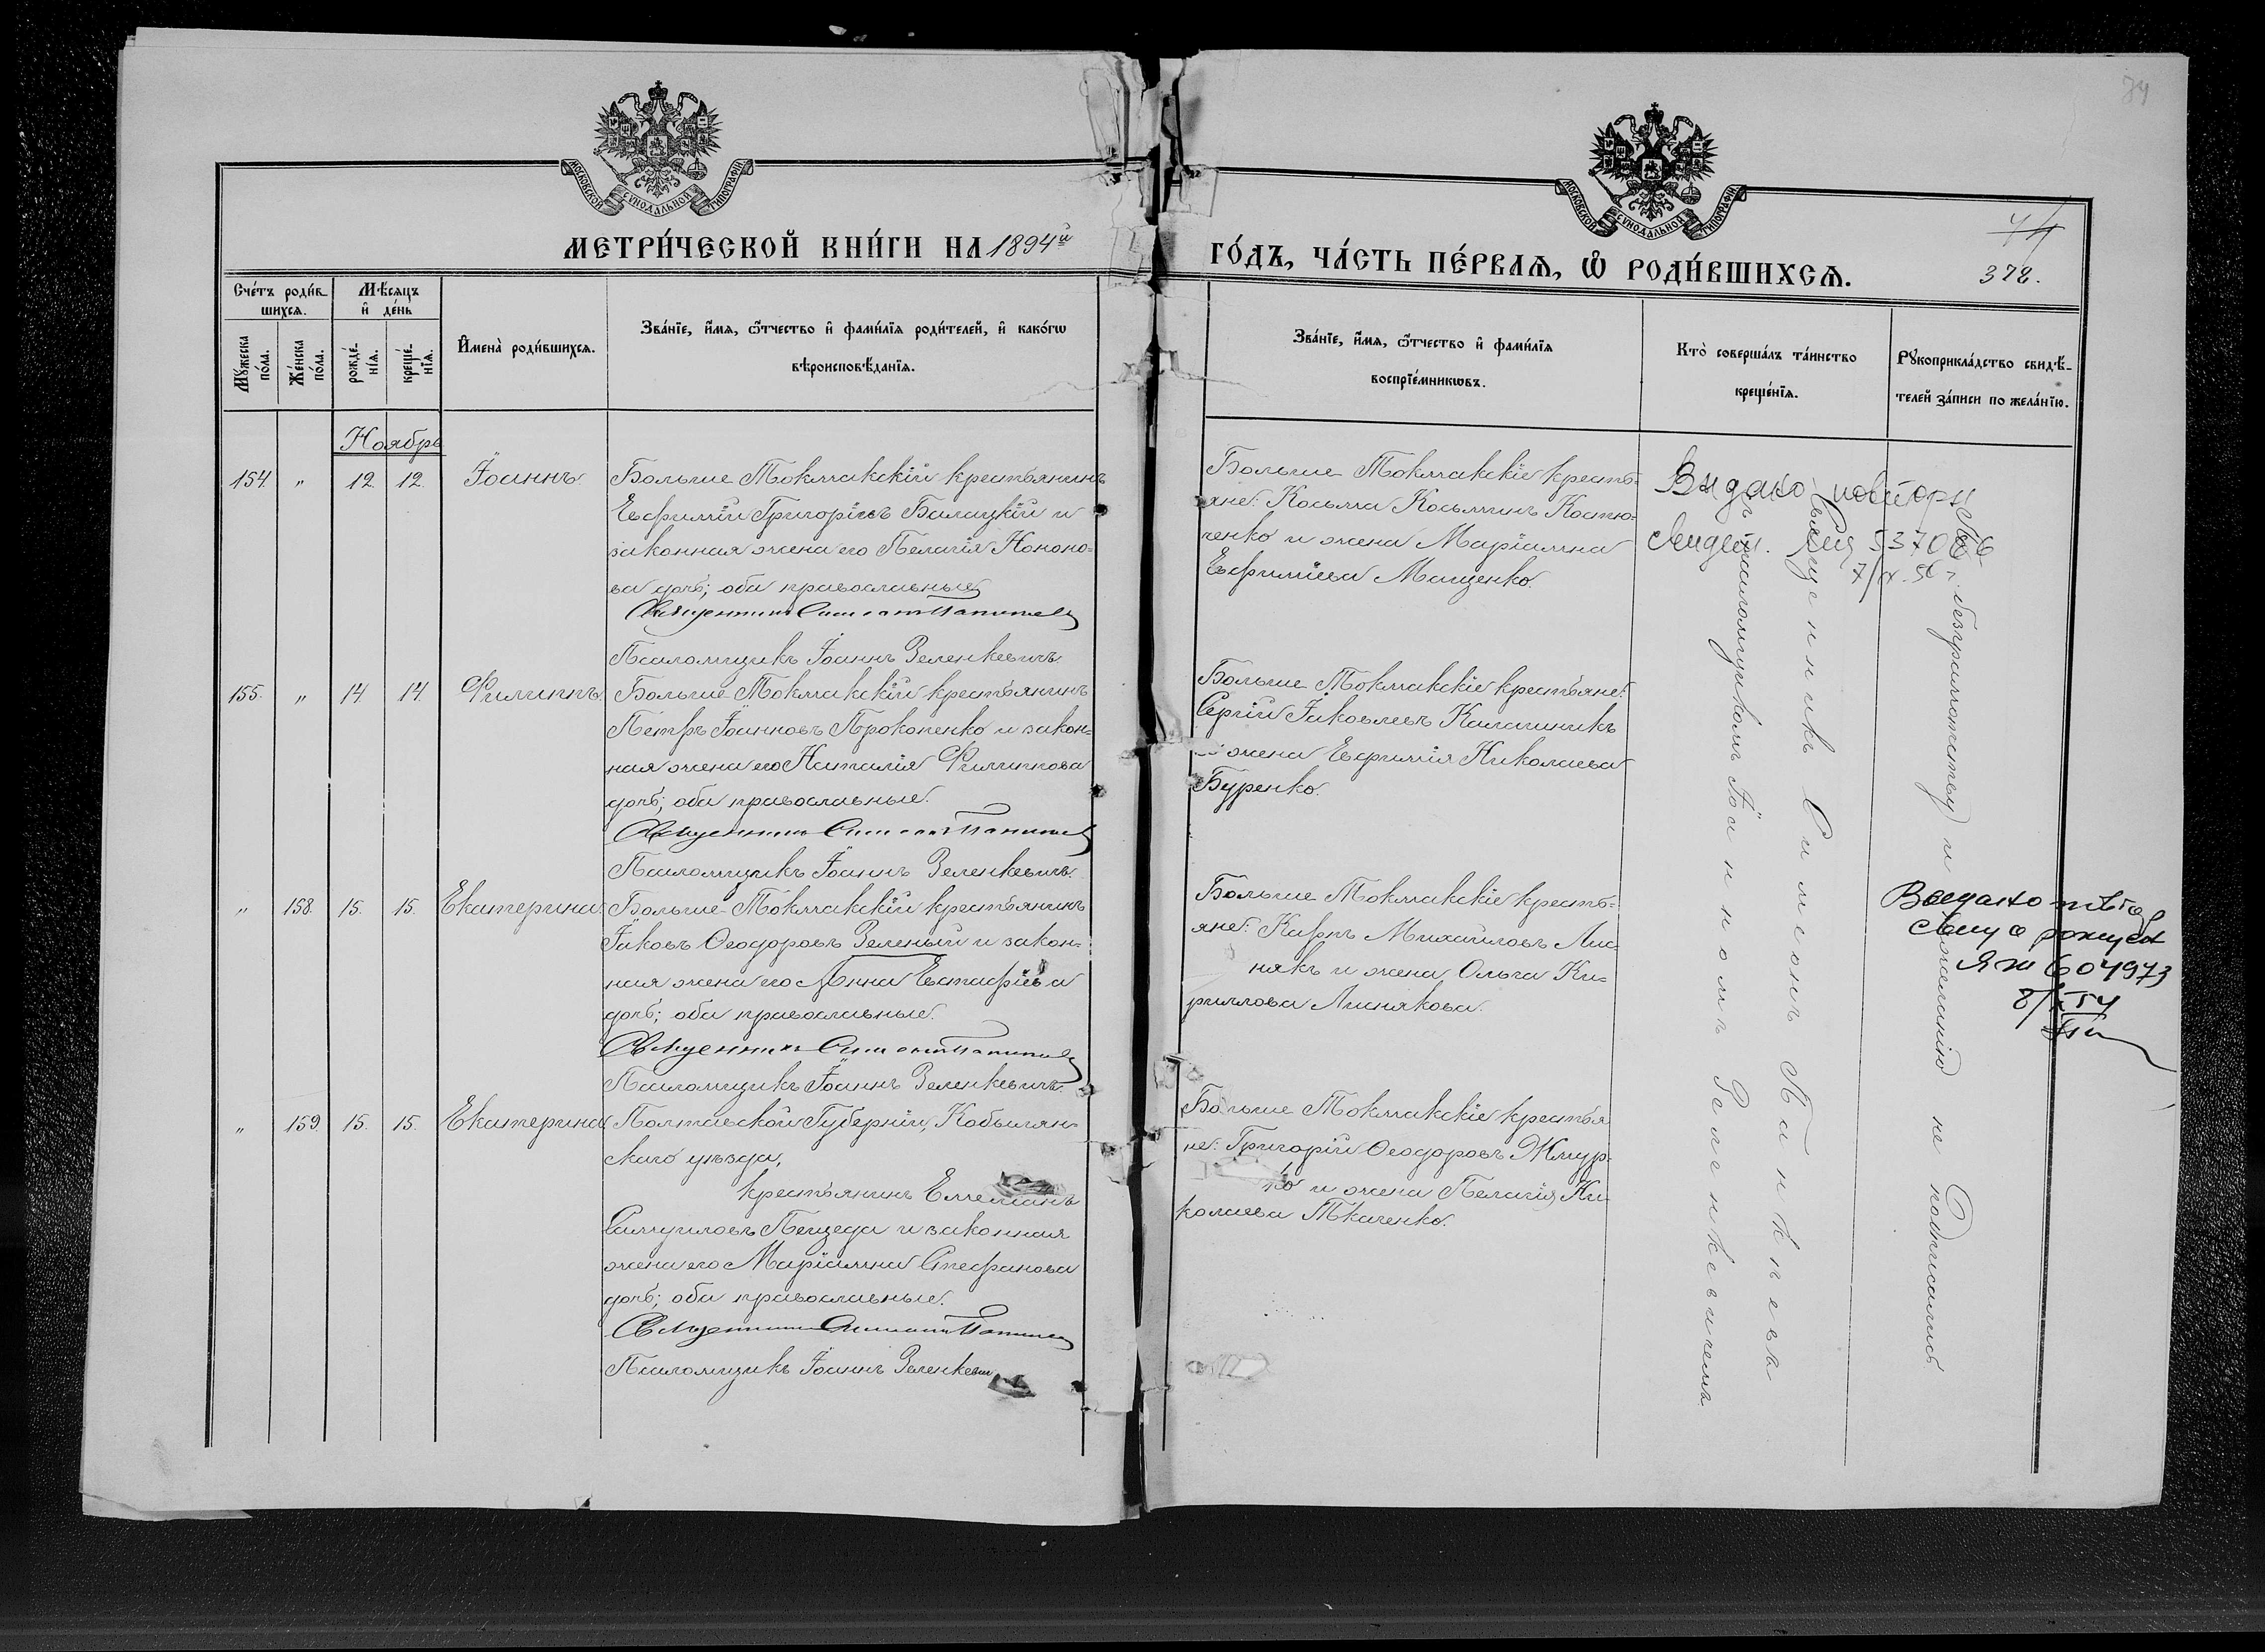 74
МОСКОВСКОЙ СУНОДАЛЬНОЙ ТИПОГРАФІИ
МОСКОВСКОЙ СУНОДАЛЬНОЙ ТИПОГРАФІИ
МЕТРИ́ЧЕСКОЙ КНИ́ГИ НА 1894й
ГО́ДЪ, ЧА́СТЬ ПЕ́РВАѦ, Ѡ҆ РОДИ́ВШИХСѦ.
378.
Сче́тъ роди́в-
шихсѧ.
Мѣ́сѧцъ
и҆ де́нь
Мꙋ́жеска
по́ла.
Же́нска
по́ла.
рожде́-
нїѧ.
креще́-
нїѧ.
И҆мена̀ роди́вшихсѧ.
Зва́нїе, и҆́мѧ, ѻ҆́тчество и҆ фами́лїѧ роди́телей, и҆ како́гѡ
вѣроисповѣ́данїѧ.
Зва́нїе, и҆́мѧ, ѻ҆́тчество и҆ фами́лїѧ
воспрїе́мникѡвъ.
Кто̀ соверша́лъ та́инство
креще́нїѧ.
Рꙋкоприкла́дство свидѣ́-
телей за́писи по жела́нїю.
Ноябрь
154. " 12. 12. Іоаннъ
Больше Токмакскій крестьянинъ
Евфимій Григоріевъ Балицкій и
законная жена его Пелагія Нононо-
ва дочь; оба православные
Священникъ Симеонъ
Псаломщикъ Іоаннъ Зеленкевичъ.
Больше Токмакскіе кресть-
яне: Косьма Косьминъ Костю-
ченко и жена Маріамна
Евфиміева Мащенко.
155. " 14. 14. Филиппъ.
Больше Токмакскій крестьянинъ
Петръ Іоанновъ Прокопенко и закон-
ная жена его Наталія Филиппова
дочь; оба православные.
Священникъ Симеонъ
Псаломщикъ Іоаннъ Зеленкевичъ.
Больше Токмакскіе крестьяне:
Сергій Іаковлевъ Калашникъ
и жена Евфимія Николаева
Буренко.
" 158. 15. 15. Екатерина.
Больше Токмакскій крестьянинъ
Іаковъ Ѳеодоровъ Зеленый и закон-
ная жена его Анна Евстафіева
дочь; оба православные.
Священникъ Симеонъ
Псаломщикъ Іоаннъ Зеленкевичъ.
Больше Токмакскіе кресть-
яне: Карпъ Михайловъ Лис-
някъ и жена Ольга Ки-
риллова Лиснякова.
" 159. 15. 15. Екатерина
Полтавской Губерніи, Кобылян-
скаго уѣзда,
крестьянинъ Емеліанъ
Самуиловъ Пещеда и законная
жена его Маріамна Стефанова
дочь; оба православные.
Священникъ Симеонъ
Псаломщикъ Іоаннъ Зеленкевичъ
Больше Токмакскіе крестья
не: Григорій Ѳеодоровъ Жмур-
ко и жена Пелагія Ни-
колаева Ткаченко.
Видано повторн
53706
Священникъ Симеонъ
съ псаломщикомъ Іоанномъ Зеленкевичемъ
По безграмотству и нежеланію не подписались
604973